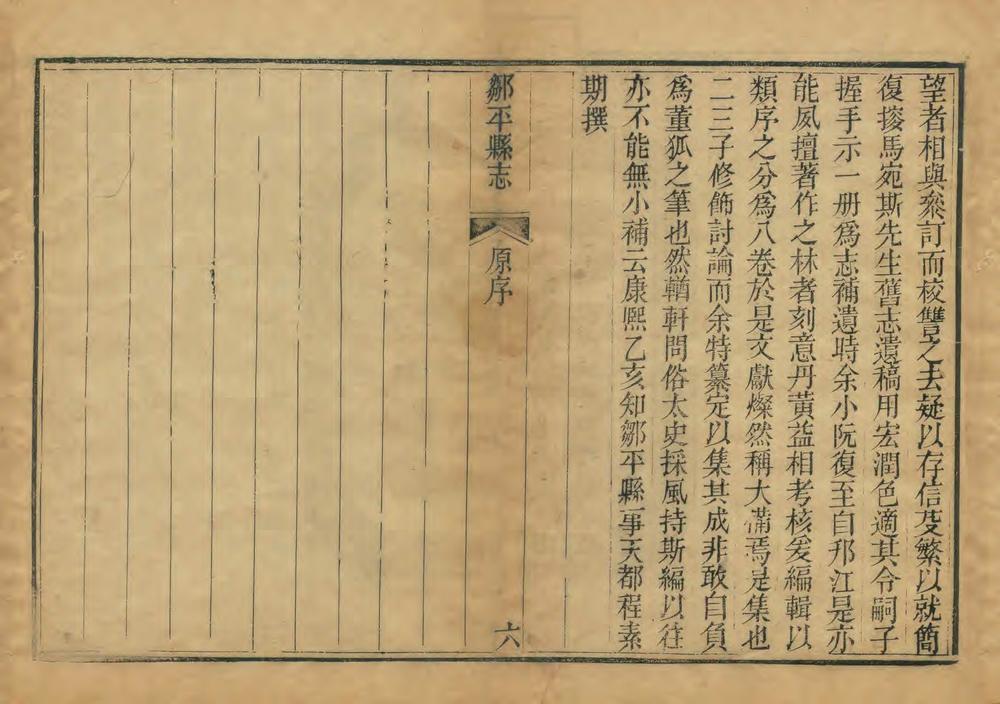 望者相與叅訂而校讐之去疑以存信芟繁以就簡
復接馬宛斯先生舊志遺稿用宏潤色適其令嗣子
握手示一册爲志補遺時余小阮復至自邗江是亦
能夙擅著作之林者刻意丹黃益相考核爰編輯以
類序之分爲八卷於是文獻燦然稱大備焉是集也
二三子修飾討論而余特纂定以集其成非敢自負
爲董狐之筆也然輶軒問俗太史採風持斯編以往
亦不能無小補云康熙乙亥知鄒平縣事天都程素
期撰
鄒平縣志
原序
六